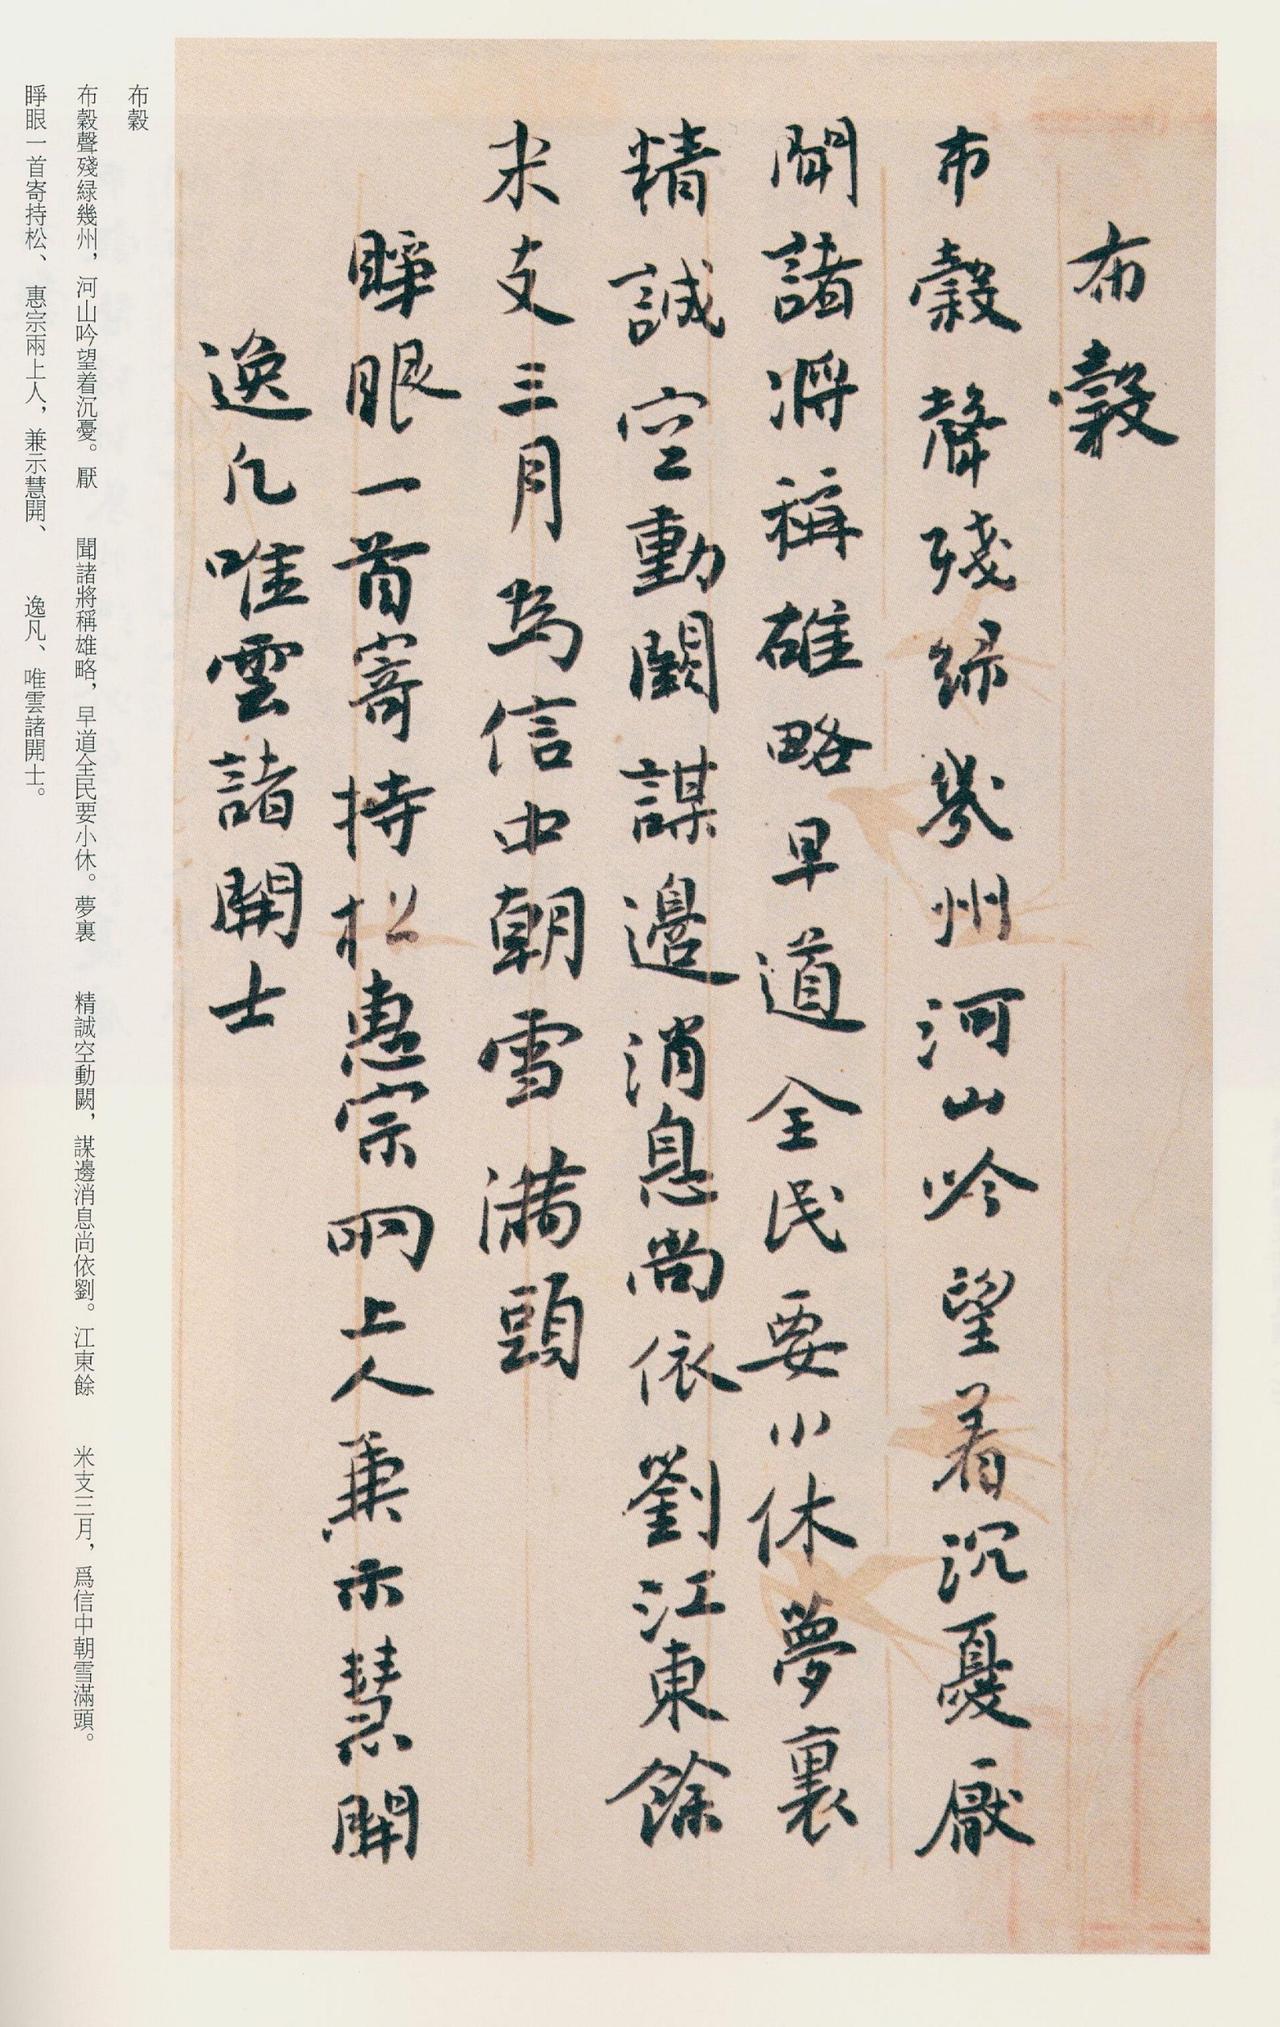 布穀
布穀聲殘緑幾州河山吟望着沉憂厭
聞諸將稱雄略早道全民要小休夢裏
精誠空動闕謀邊消息尚依劉江東餘
米支三月爲信中朝雪滿頭
睜眼一首寄持松惠宗兩上人兼示慧開
逸凡唯雲諸開士
布穀
布穀聲殘緑幾州，河山吟望着沉憂。厭　聞諸將稱雄略，早道全民要小休。夢裏　精誠空動闕，謀邊消息尚依劉。江東餘　米支三月，爲信中朝雪滿頭。
睜眼一首寄持松、惠宗兩上人，兼示慧開、　逸凡、唯雲諸開士。